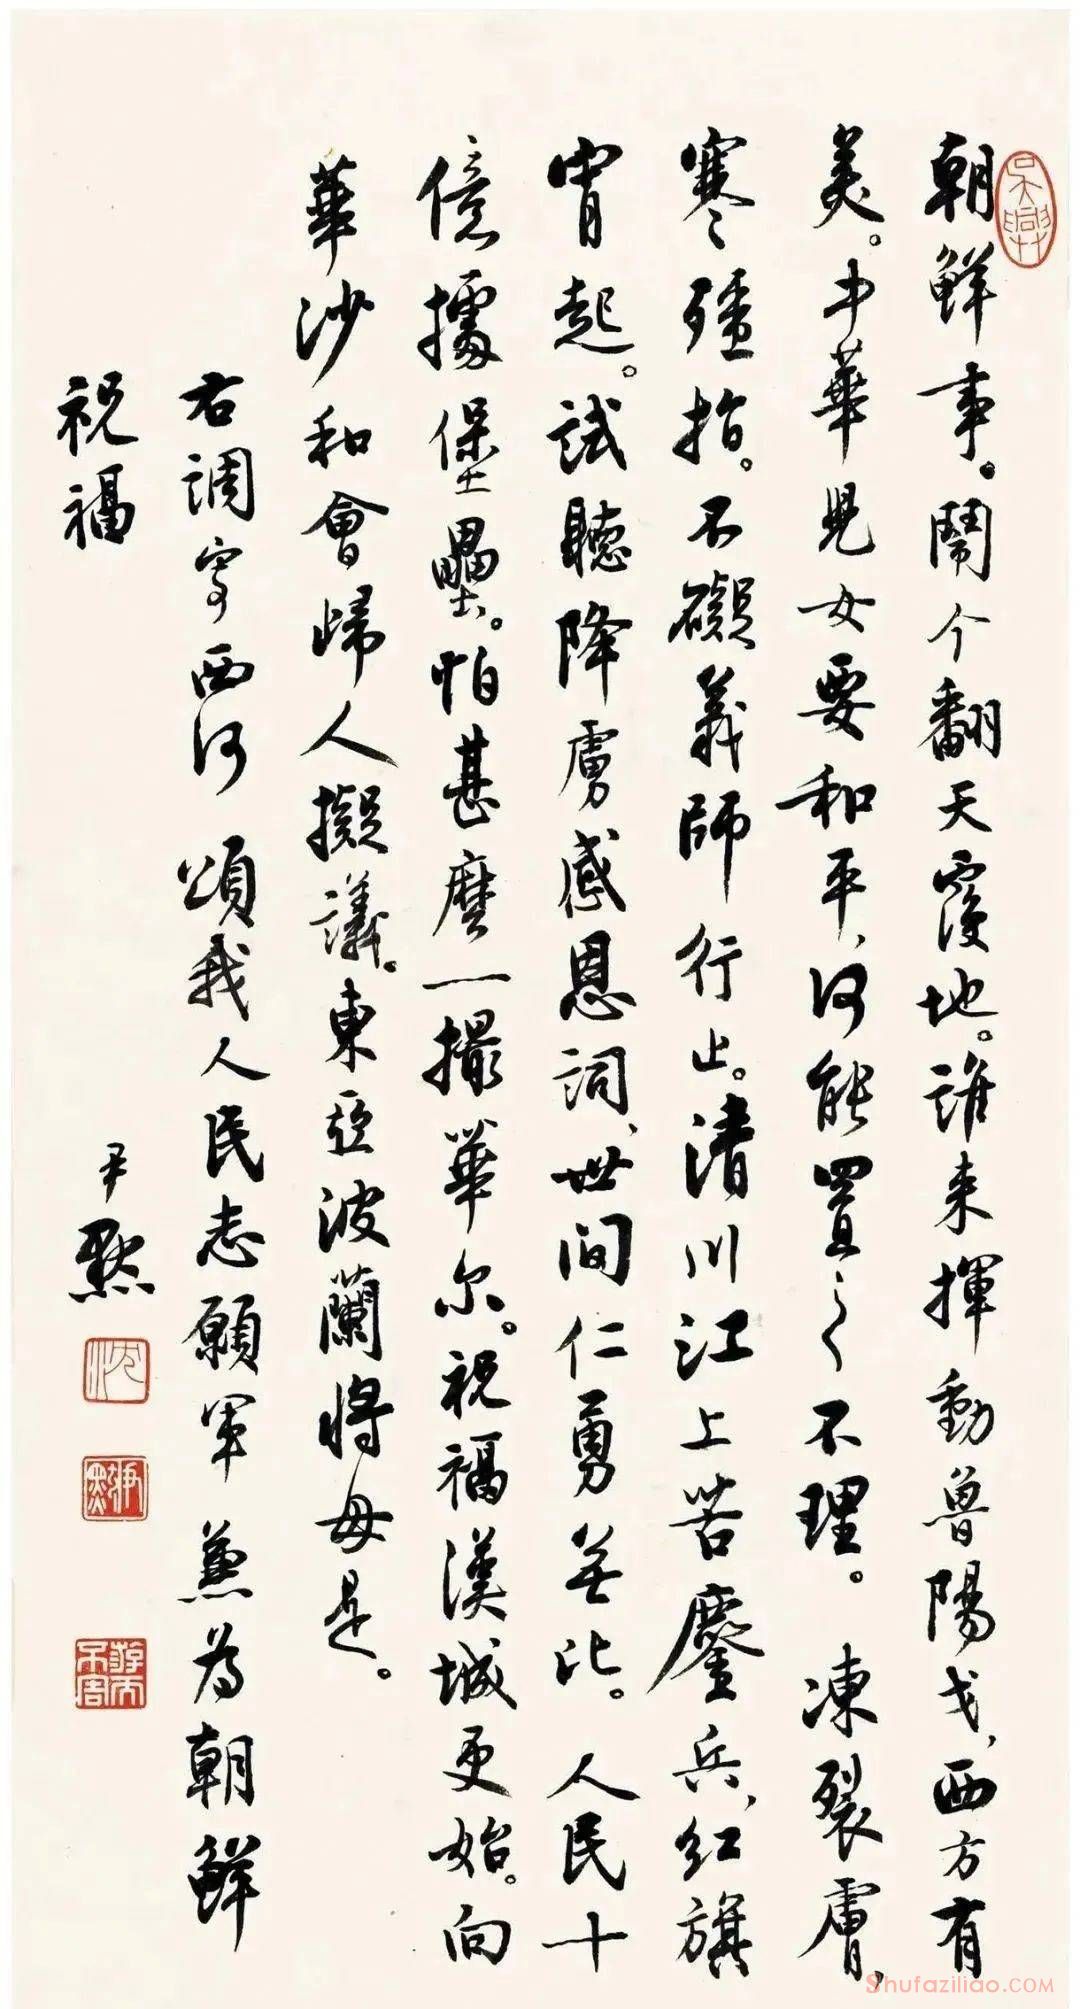 朝鮮事。鬧个翻天覆地。誰来揮動魯陽戈、西方有
美。中華兒女要和平、何能置之不理。 凍裂膚、
寒殭指。不礙義師行止。清川江上苦鏖兵、紅旗
宵起。試聽降虜感恩詞、世间仁勇無比。 人民十
億擄堡壘。怕甚麼一撮華尔。祝福漢城更始。向
華沙和會歸人擬議。東亞波蘭將毋是。
右調寄西河 頌我人民志願軍 兼為朝鮮
祝福
尹默
吳興
沈
尹默
Shufaziliao.COM